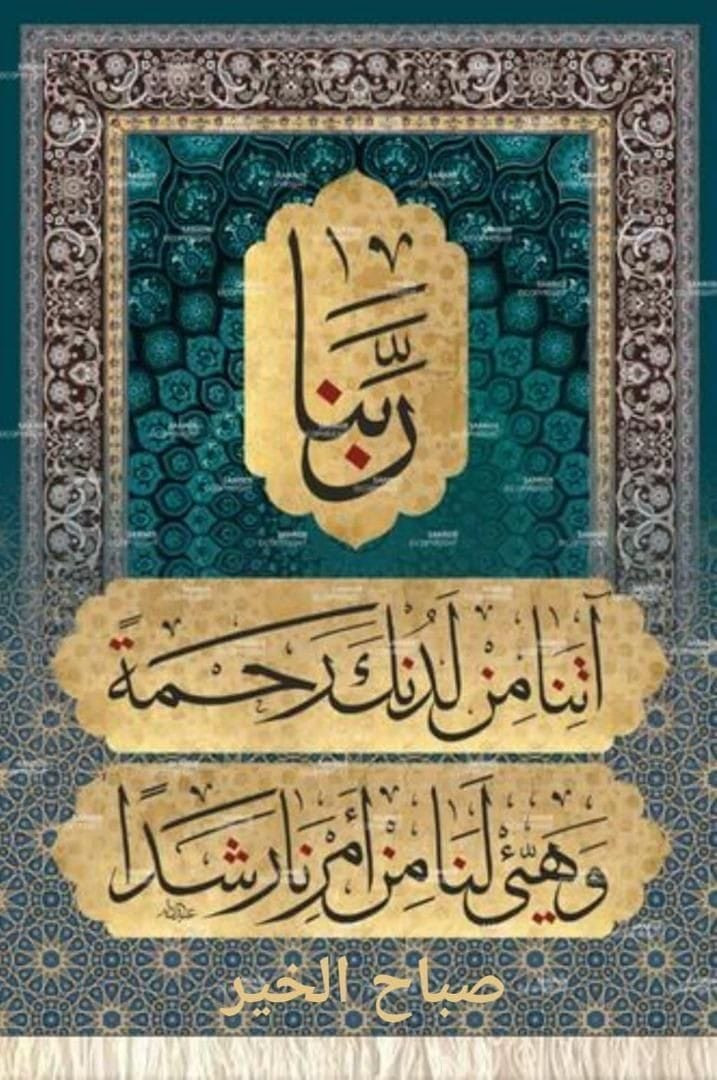 رَبَّنَا
آتِنَا مِن لَدُنكَ رَحْمَةً
وَهَيِّئْ لَنَا مِنْ أَمْرِنَا رَشَدًا
صباح الخير